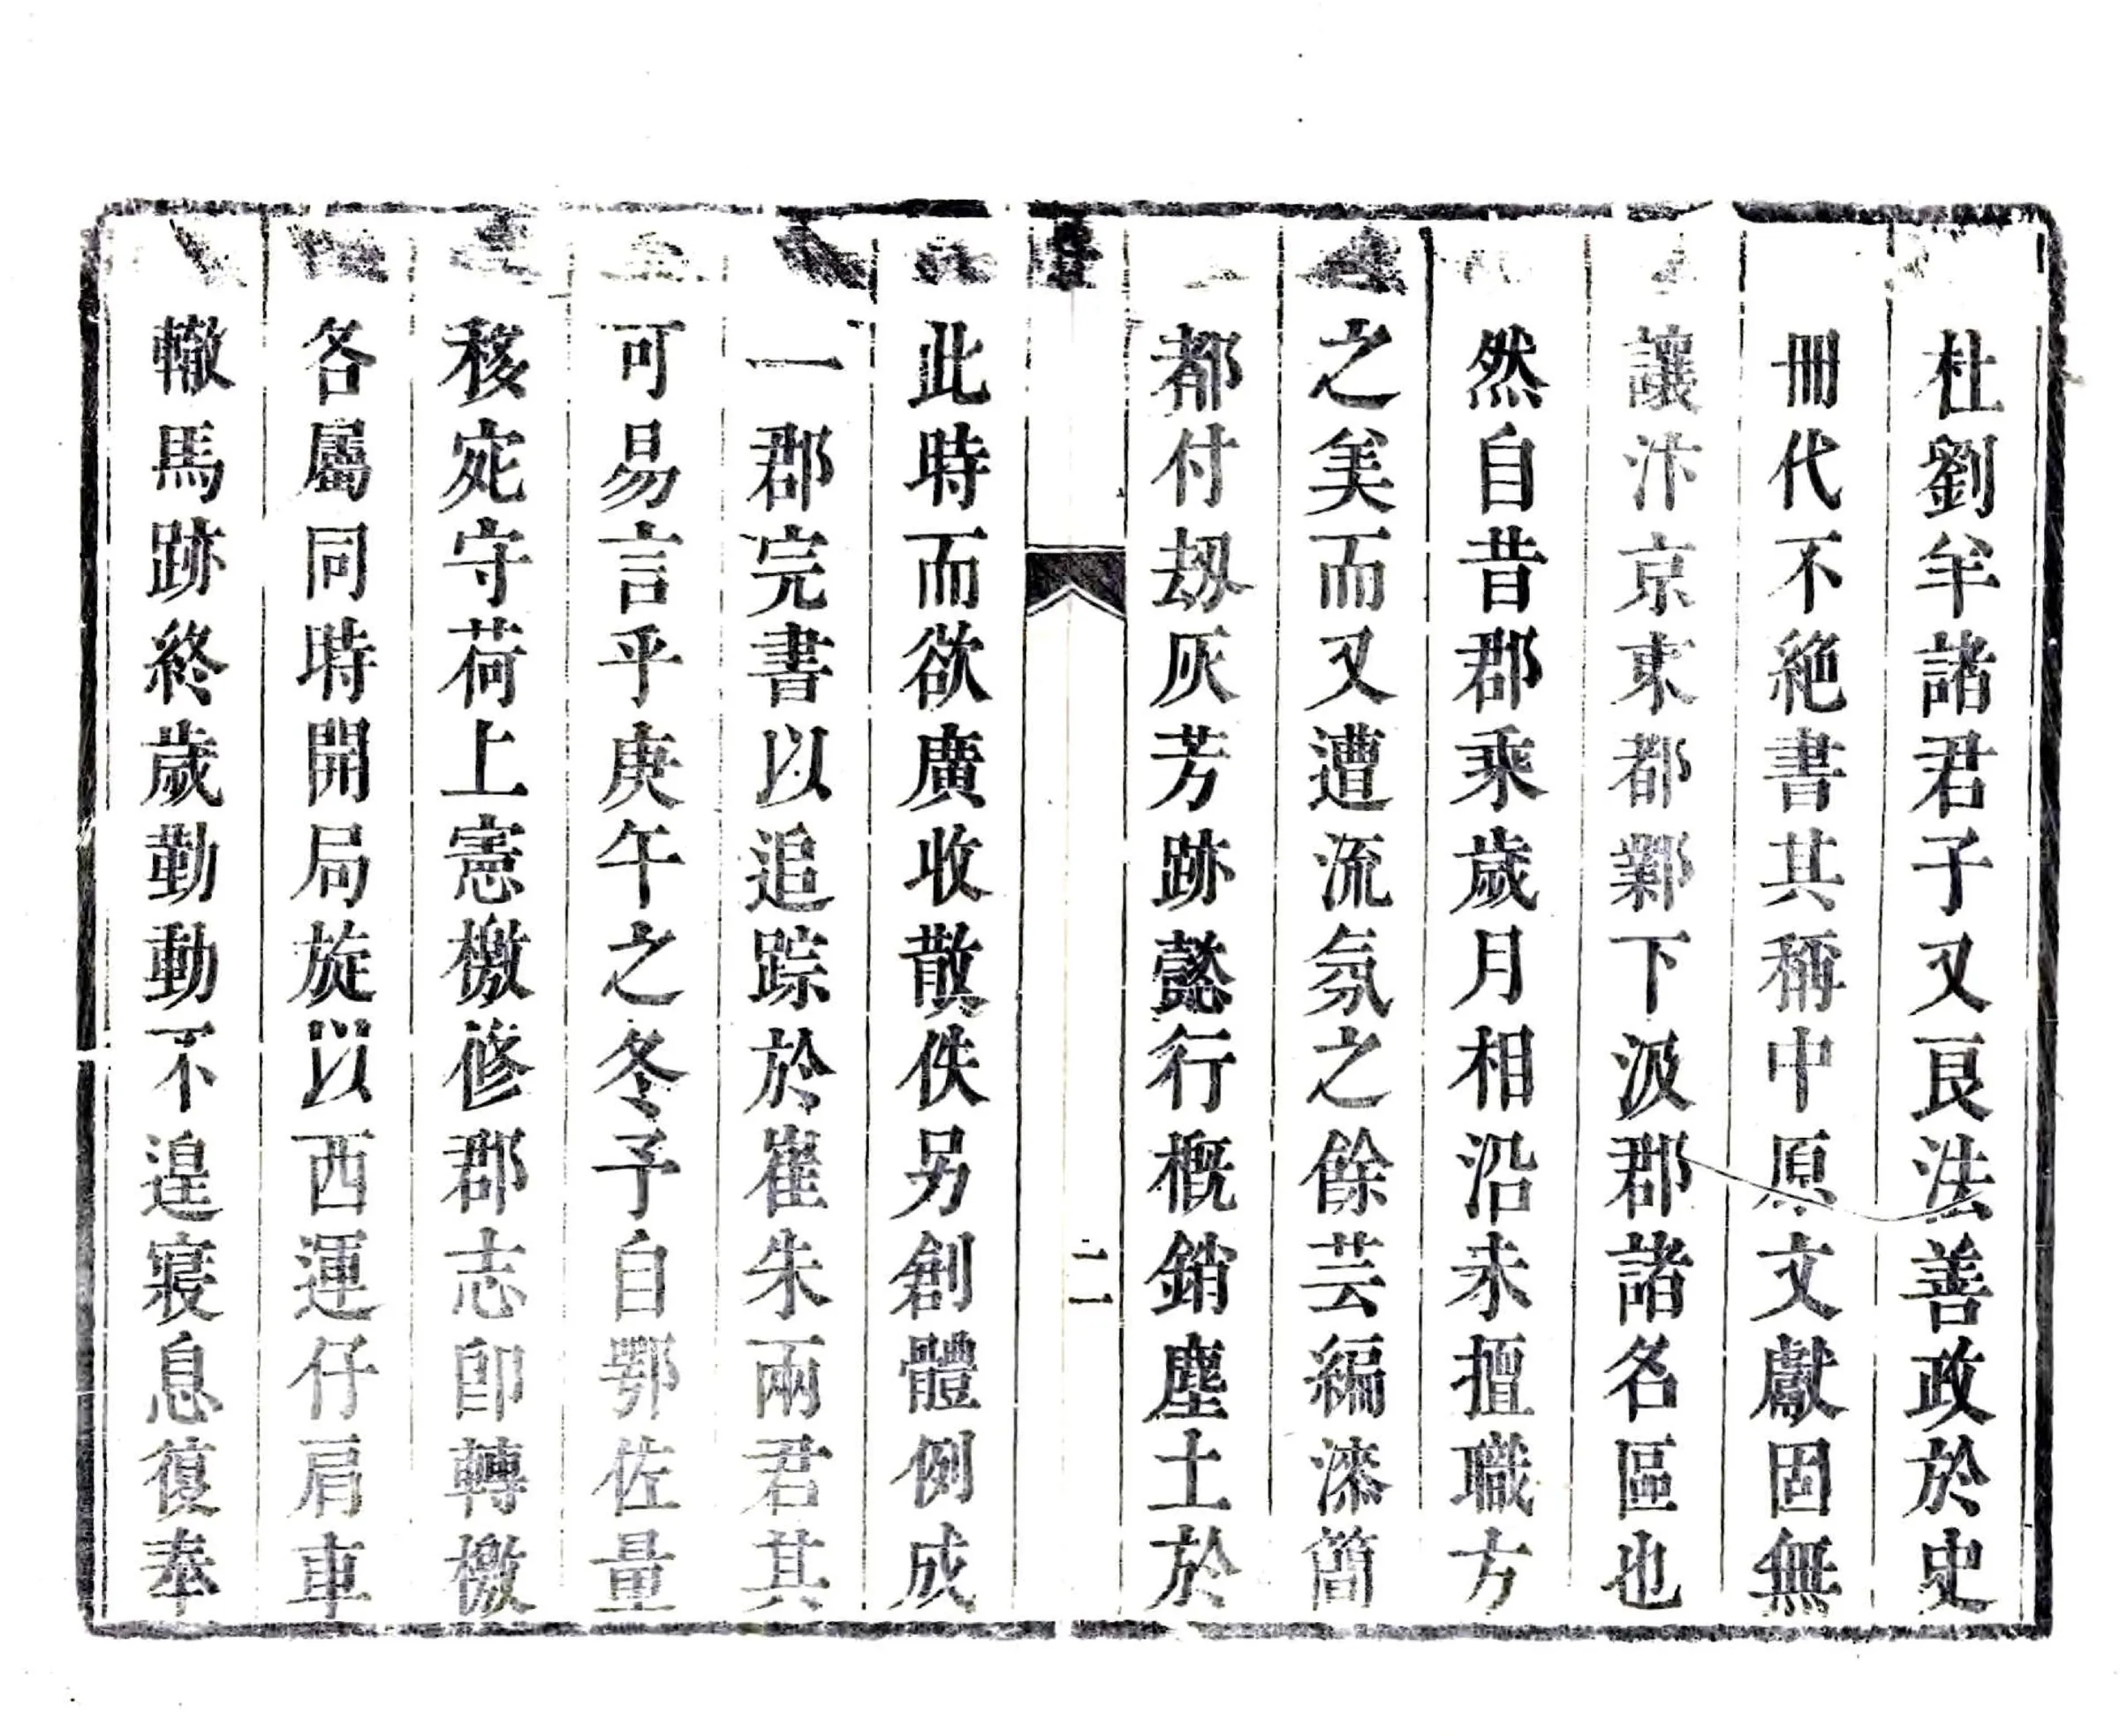 杜劉羊諸君子又良法善政於史
冊代不絶書其稱中原文獻固無
讓汴京東都鄴下汲郡諸名區也
然自昔郡乘歲月相沿未擅職方
之美而又遭流氛之餘芸編漆簡
都付刼灰芳跡懿行概銷塵土於
二
此時而欲廣收散佚另創體例成
一郡完書以追踪於崔朱兩君其
可易言乎庚午之冬予自鄂佐量
移宛守荷上憲檄修郡志即轉檄
各屬同時開局旋以西運仔肩車
轍馬跡終歲勤動不遑寢息復奉